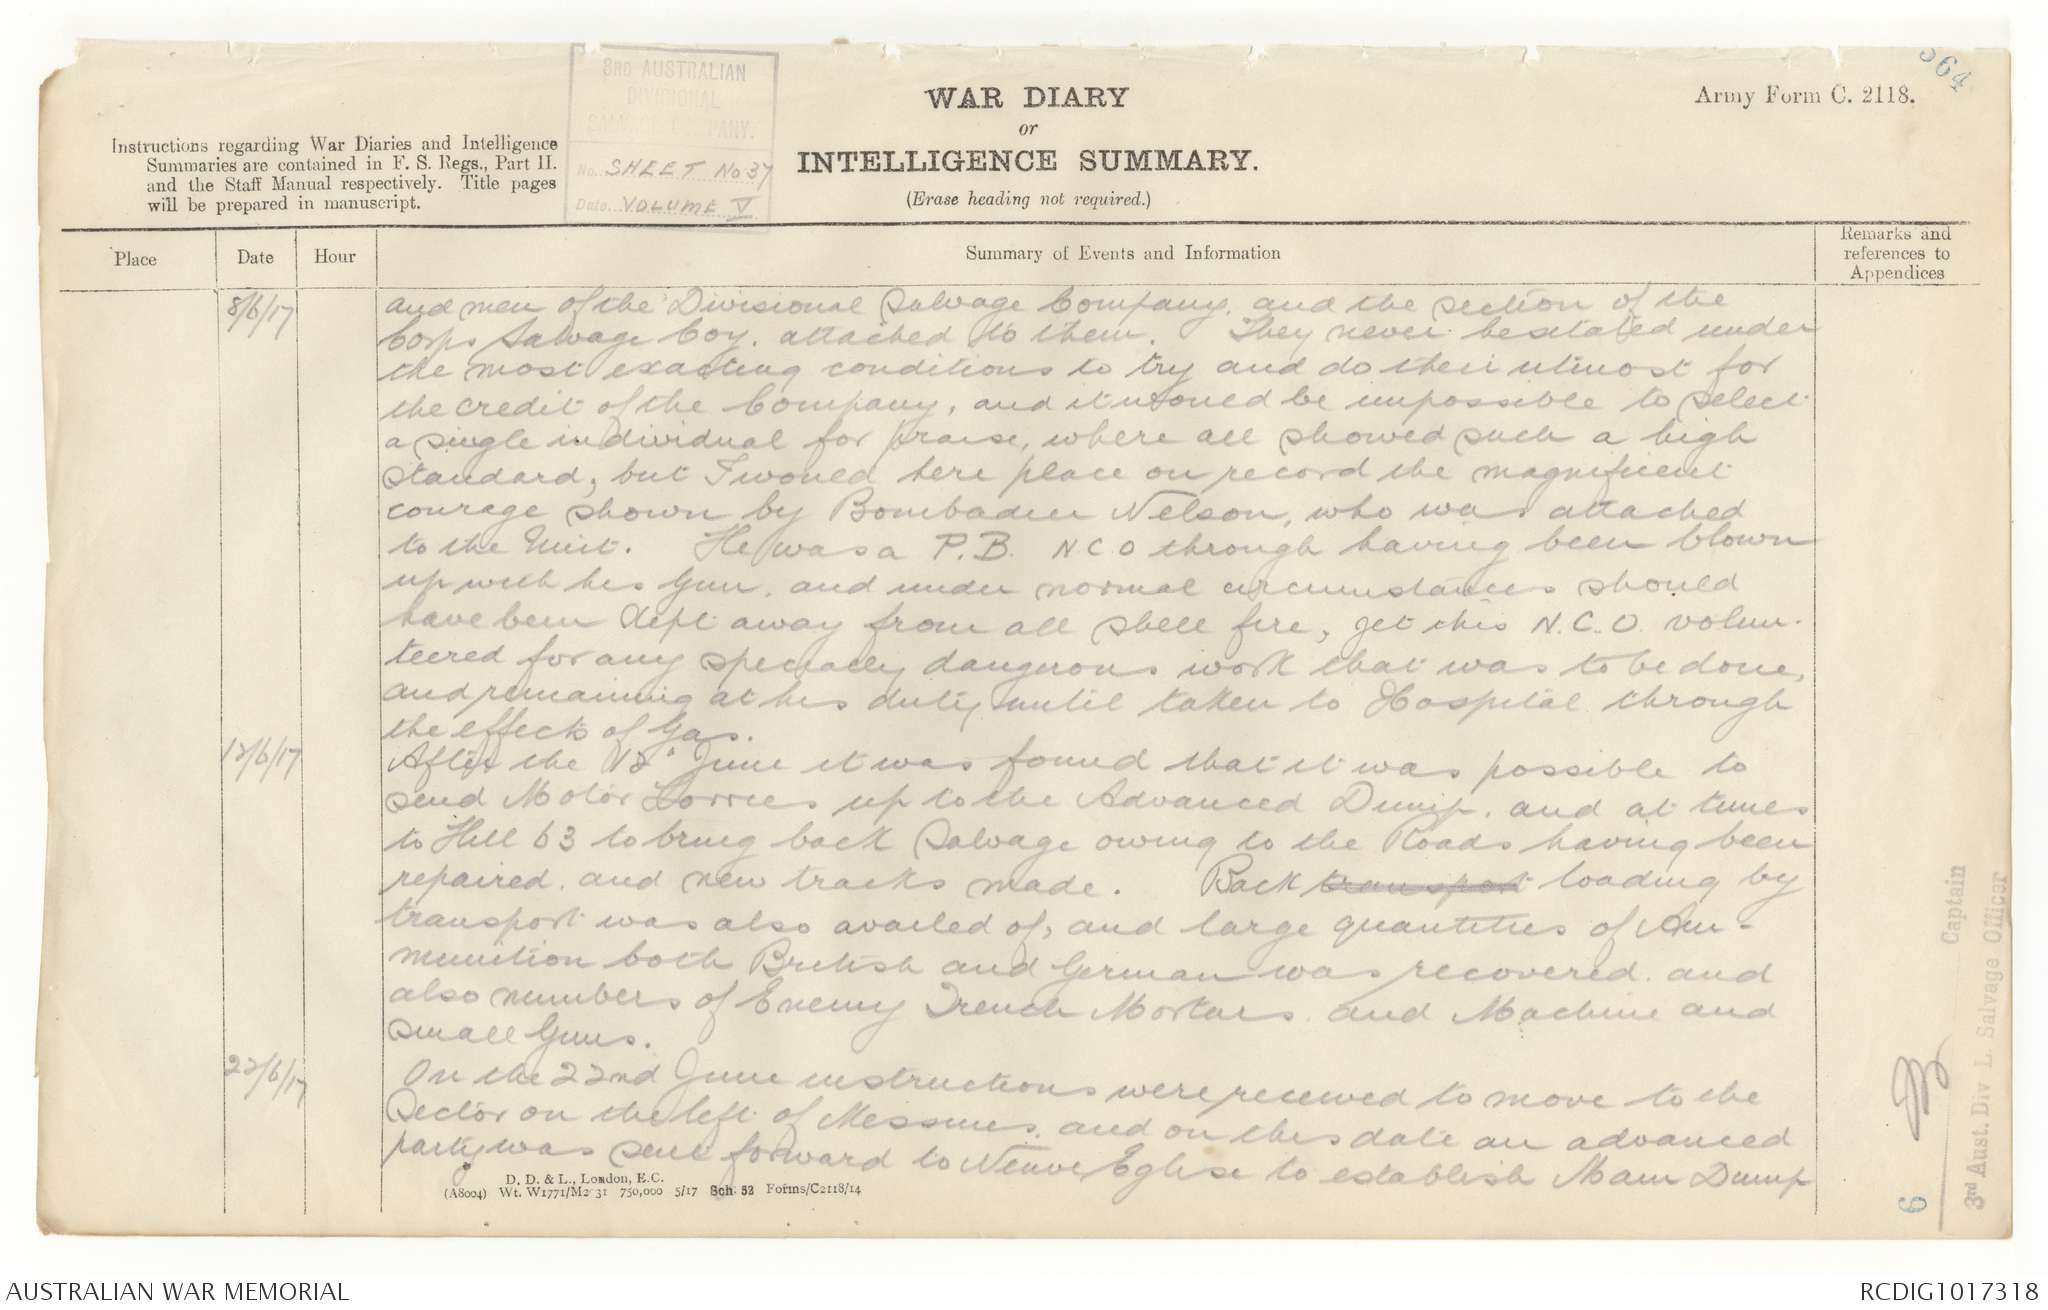 3RD AUSTRALIAN
DIVISIONAL
SALVAGE COMPANY.
No. SHEET No 37
Date. VOLUME V
WAR DIARY
or
INTELLIGENCE SUMMARY.
(Erase heading not required.)
Army Form C. 2118.
364
Instructions regarding War Diaries and Intelligence
Summaries are contained in F. S. Regs., Part II.
and the Staff Manual respectively. Title pages
will be prepared in manuscript.
Place
Date
Hour
Summary of Events and Information
Remarks and
references to
Appendices
8/6/17
and men of the Divisional Salvage Company, and the section of the
Corps Salvage Coy. attached to them. They never hesitated under
the most exacting conditions to try and do their utmost for
the credit of the Company, and it would be impossible to select
a single individual for praise, where all showed such a high
standard, but I would here place on record the magnificent
courage shown by Bombadier Nelson, who was attached
to the Unit. He was a P.B. NCO through having been blown
up with his Gun, and under normal circumstances should
have been kept away from all shell fire, yet this N.C.O. volun-
teered for any specially dangerous work that was to be done,
and remaining at his duty until taken to Hospital through
the effects of Gas.
12/6/17
After the 12" June it was found that it was possible to
send Motor Lorries up to the Advanced Dump, and at times
to Hill 63 to bring back Salvage owing to the Roads having been
repaired, and new tracks made. Back transport loading by
transport was also availed of, and large quantities of Am-
munition both British and German was recovered, and
also numbers of Enemy Trench Mortars, and Machine and
small Guns.
22/6/17
On the 22nd June instructions were received to move to the
Sector on the left of Messines, and on this date an advanced
party was sent forward to Neuve Eglise to establish Main Dump
D. D. & L., London, E.C.
(A8004) Wt. W1771/M2 31 750,000 5/17 Sch. 52 Forms/C2118/14
Captain
3rd Aust. Div L. Salvage Officer
6
AUSTRALIAN WAR MEMORIAL
RCDIG1017318